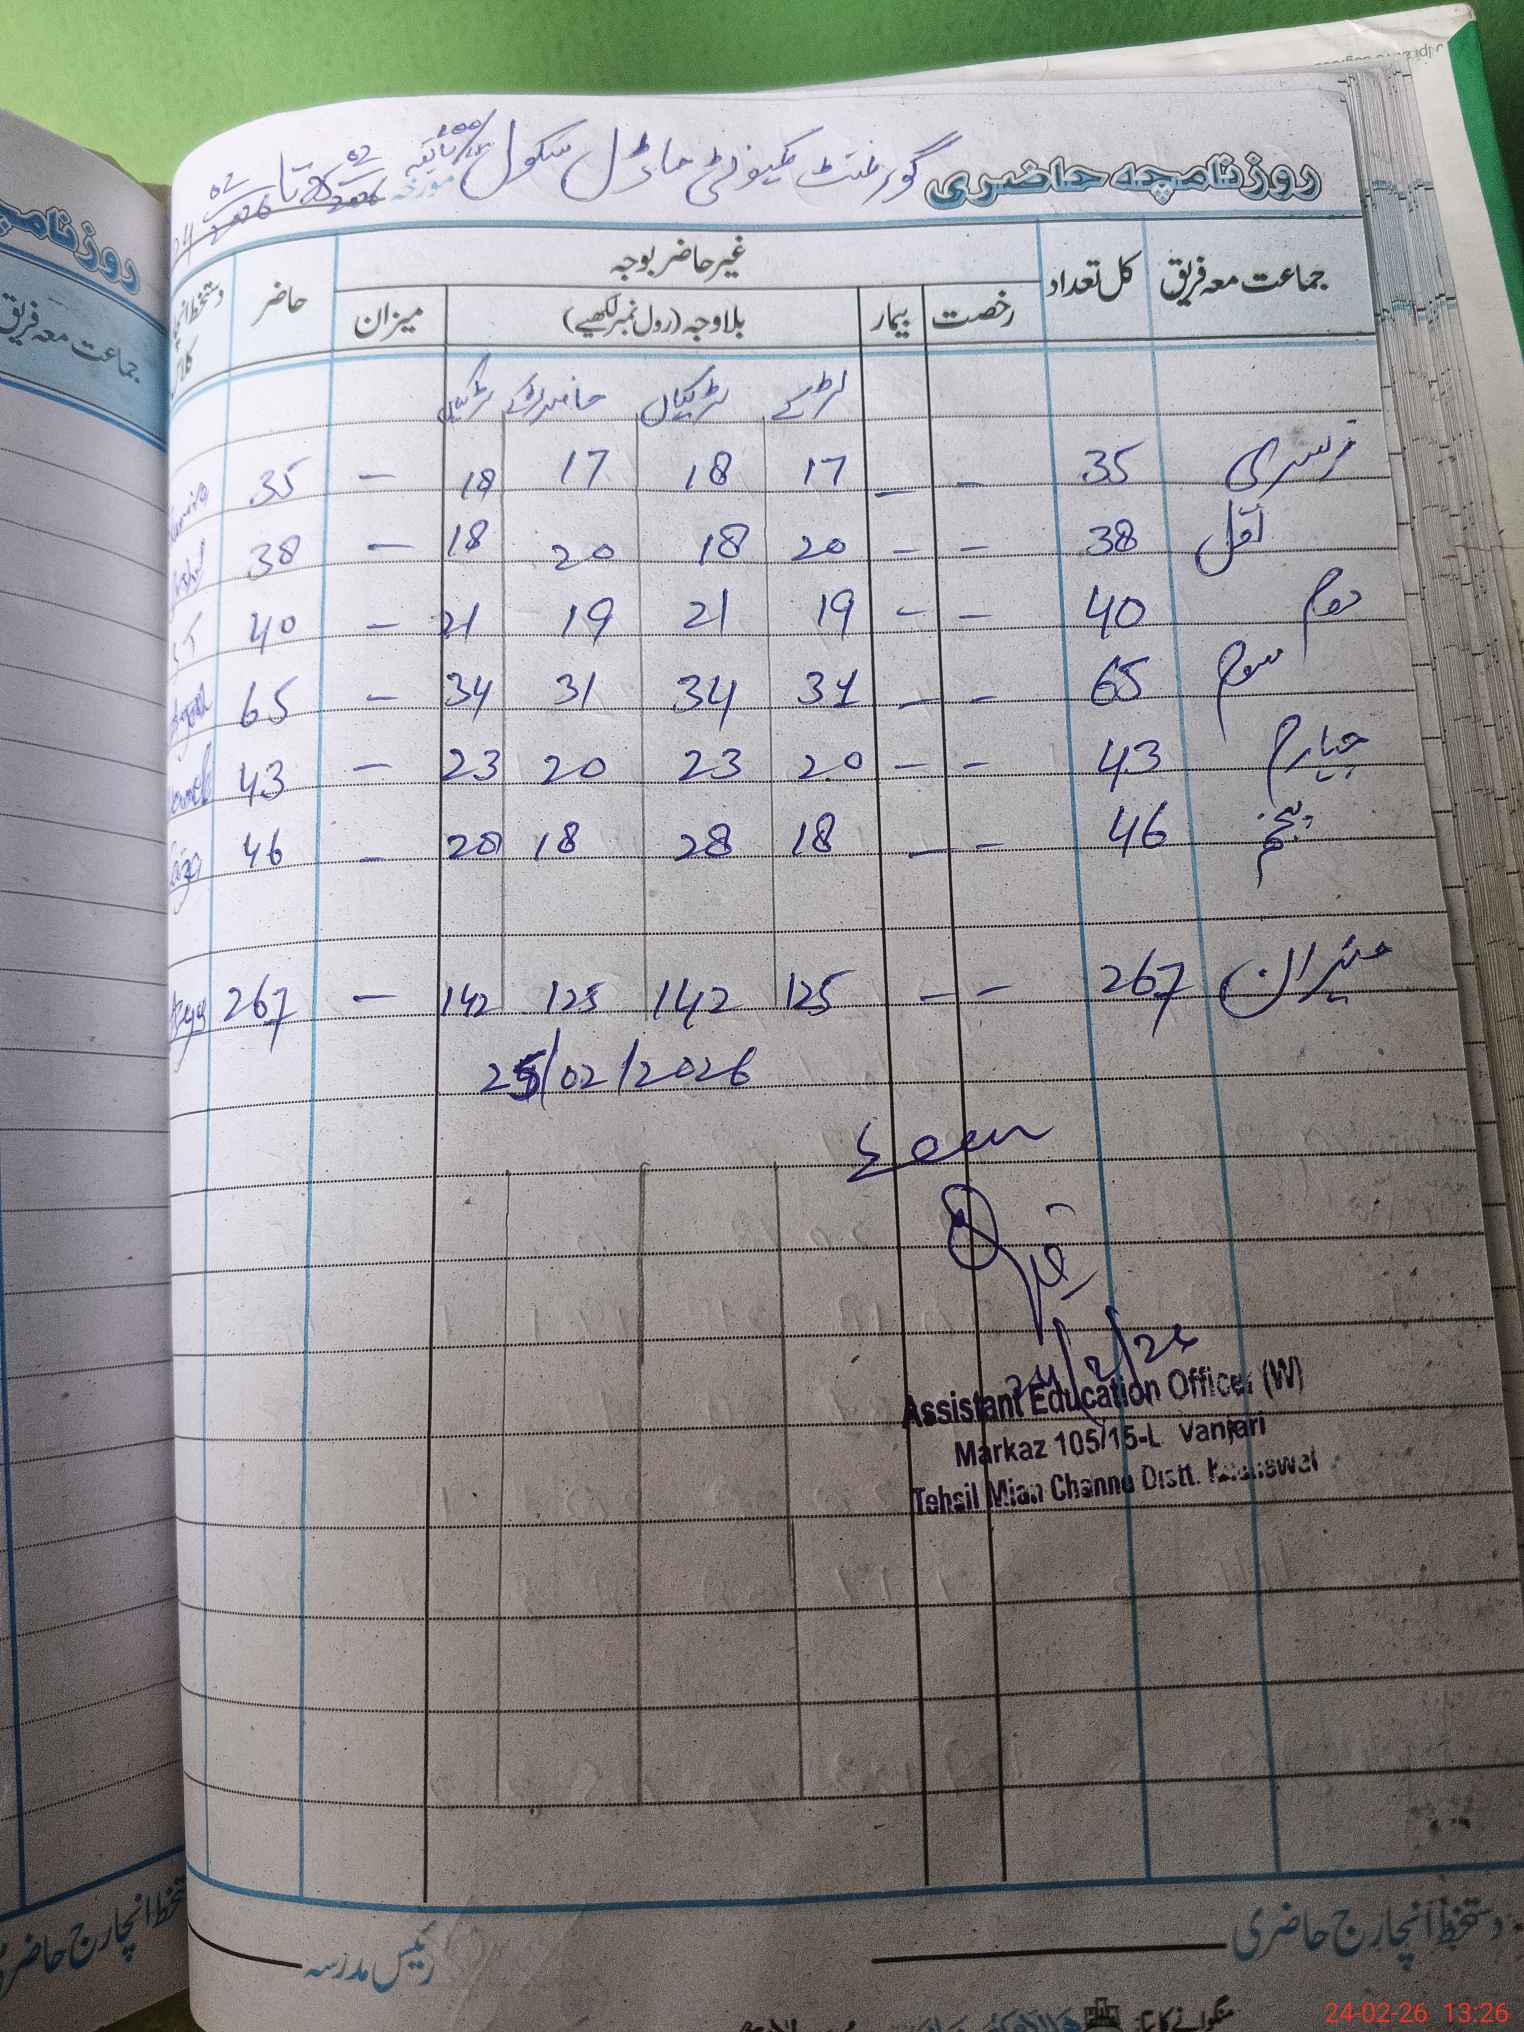 روزنامچہ حاضری گورنمنٹ کمیونٹی ماڈل سکول 100/15 مورخہ 02 2026 تا 02 2026
جماعت معہ فریق کل تعداد غیر حاضر بوجہ حاضر دستخط
رخصت بیمار بلاوجہ (رول نمبر لکھیے) میزان
لڑکے لڑکیاں حاضر لڑکے لڑکیاں
نرسری 35 - - 17 18 17 18 - 35
اول 38 - - 20 18 20 18 - 38
دوم 40 - - 19 21 19 21 - 40
سوم 65 - - 31 34 31 34 - 65
چہارم 43 - - 20 23 20 23 - 43
پنجم 46 - - 18 28 18 28 - 46
میزان 267 - - 125 142 125 142 - 267
25/02/2026
Seen
24/2/26
Assistant Education Officer (W)
Markaz 105/15-L Vanjari
Tehsil Mian Channu Distt. Khanewal
دستخط انچارج حاضری رئیس مدرسہ
منگوانے کا پتہ
روزنامچہ
جماعت معہ فریق
دستخط انچارج حاضری
24-02-26 13:26